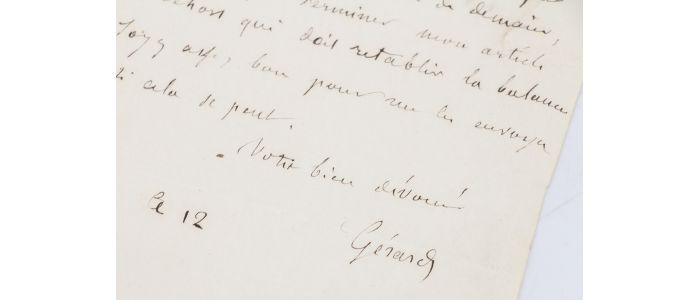 de demain,
terminer mon article
qui doit rétablir la balance
Soyez assez bon pour me les envoyer
si cela se peut.
Votre bien dévoué
Le 12
Gérard